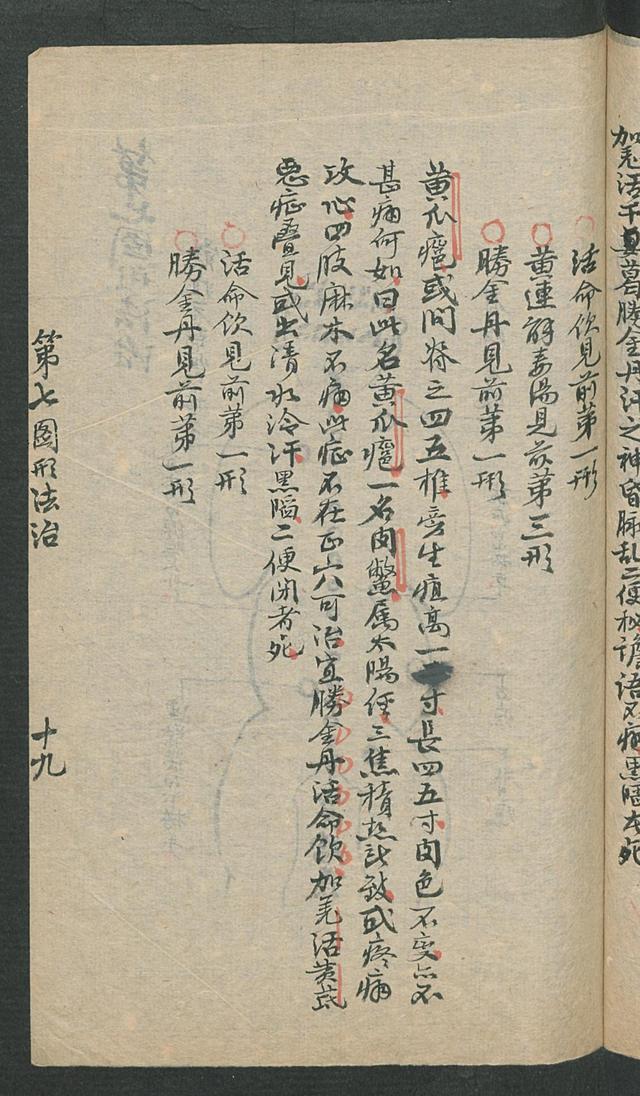 加羌活千葛勝金丹汗之神昏脉乱二便秘譫語又痛黑陷本死
活命飲見前第一形
黄連解毒湯見前第三形
勝金丹見前第一形
黄瓜癰或問脊之四五椎旁生疽高一寸長四五寸肉色不变亦不
甚痛何如曰此名黄瓜癰一名肉鱉属太陽経三焦積热所致或疼痛
攻心四肢麻木不痛此症不在正穴可治宜勝金丹活命飲加羌活黄芪
惡症疊見或出清水冷汗黑陷二便闭者死
活命飲見前第一形
勝金丹見前第一形
第七图形法治
十九